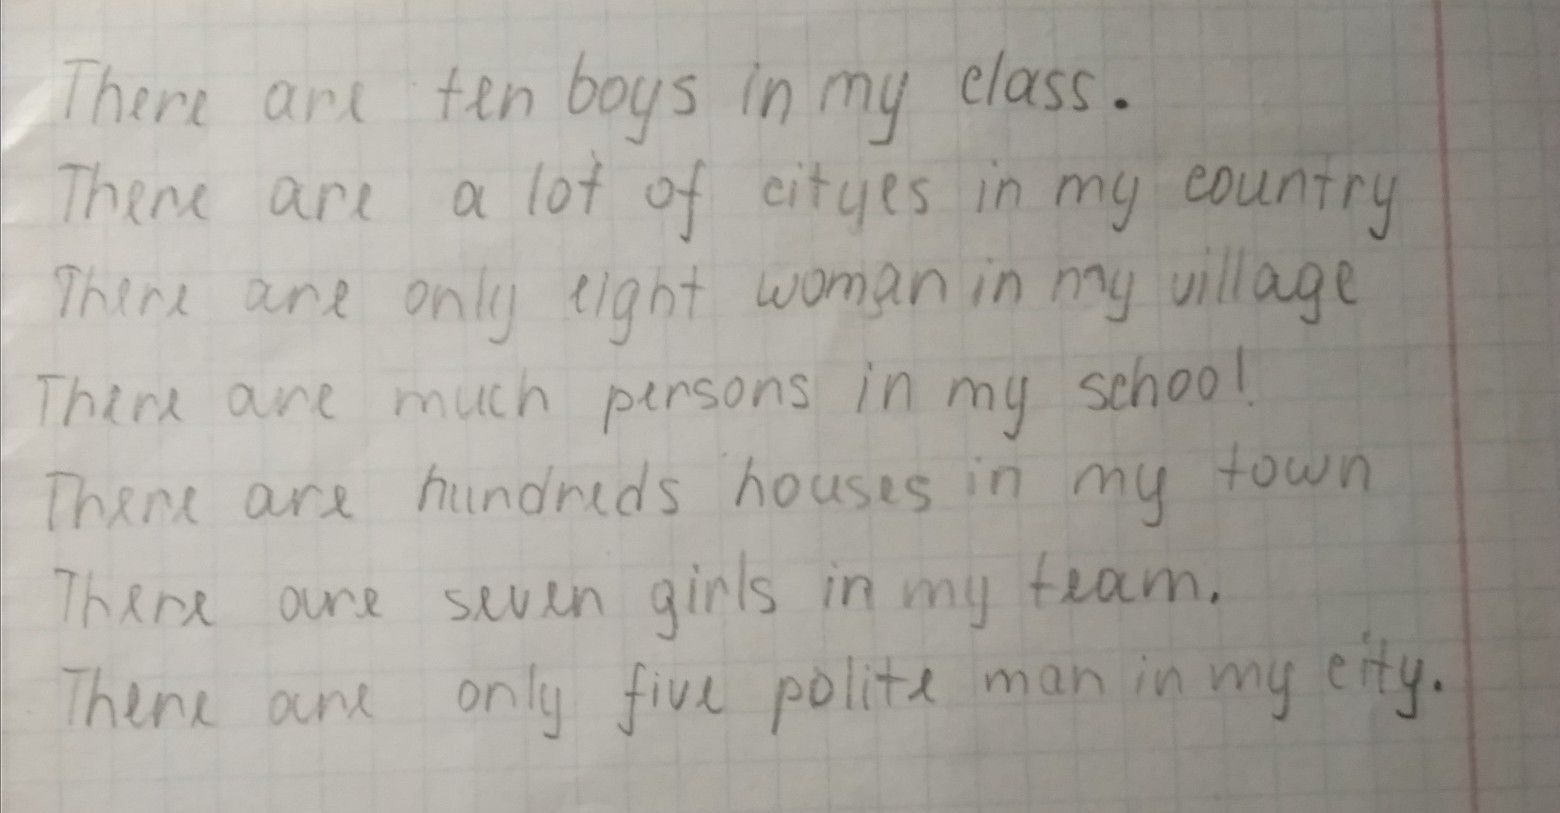 There are ten boys in my class.
There are a lot of cityes in my country
There are only eight woman in my village
There are much persons in my school
There are hundreds houses in my town
There are seven girls in my team.
There are only five polite man in my city.